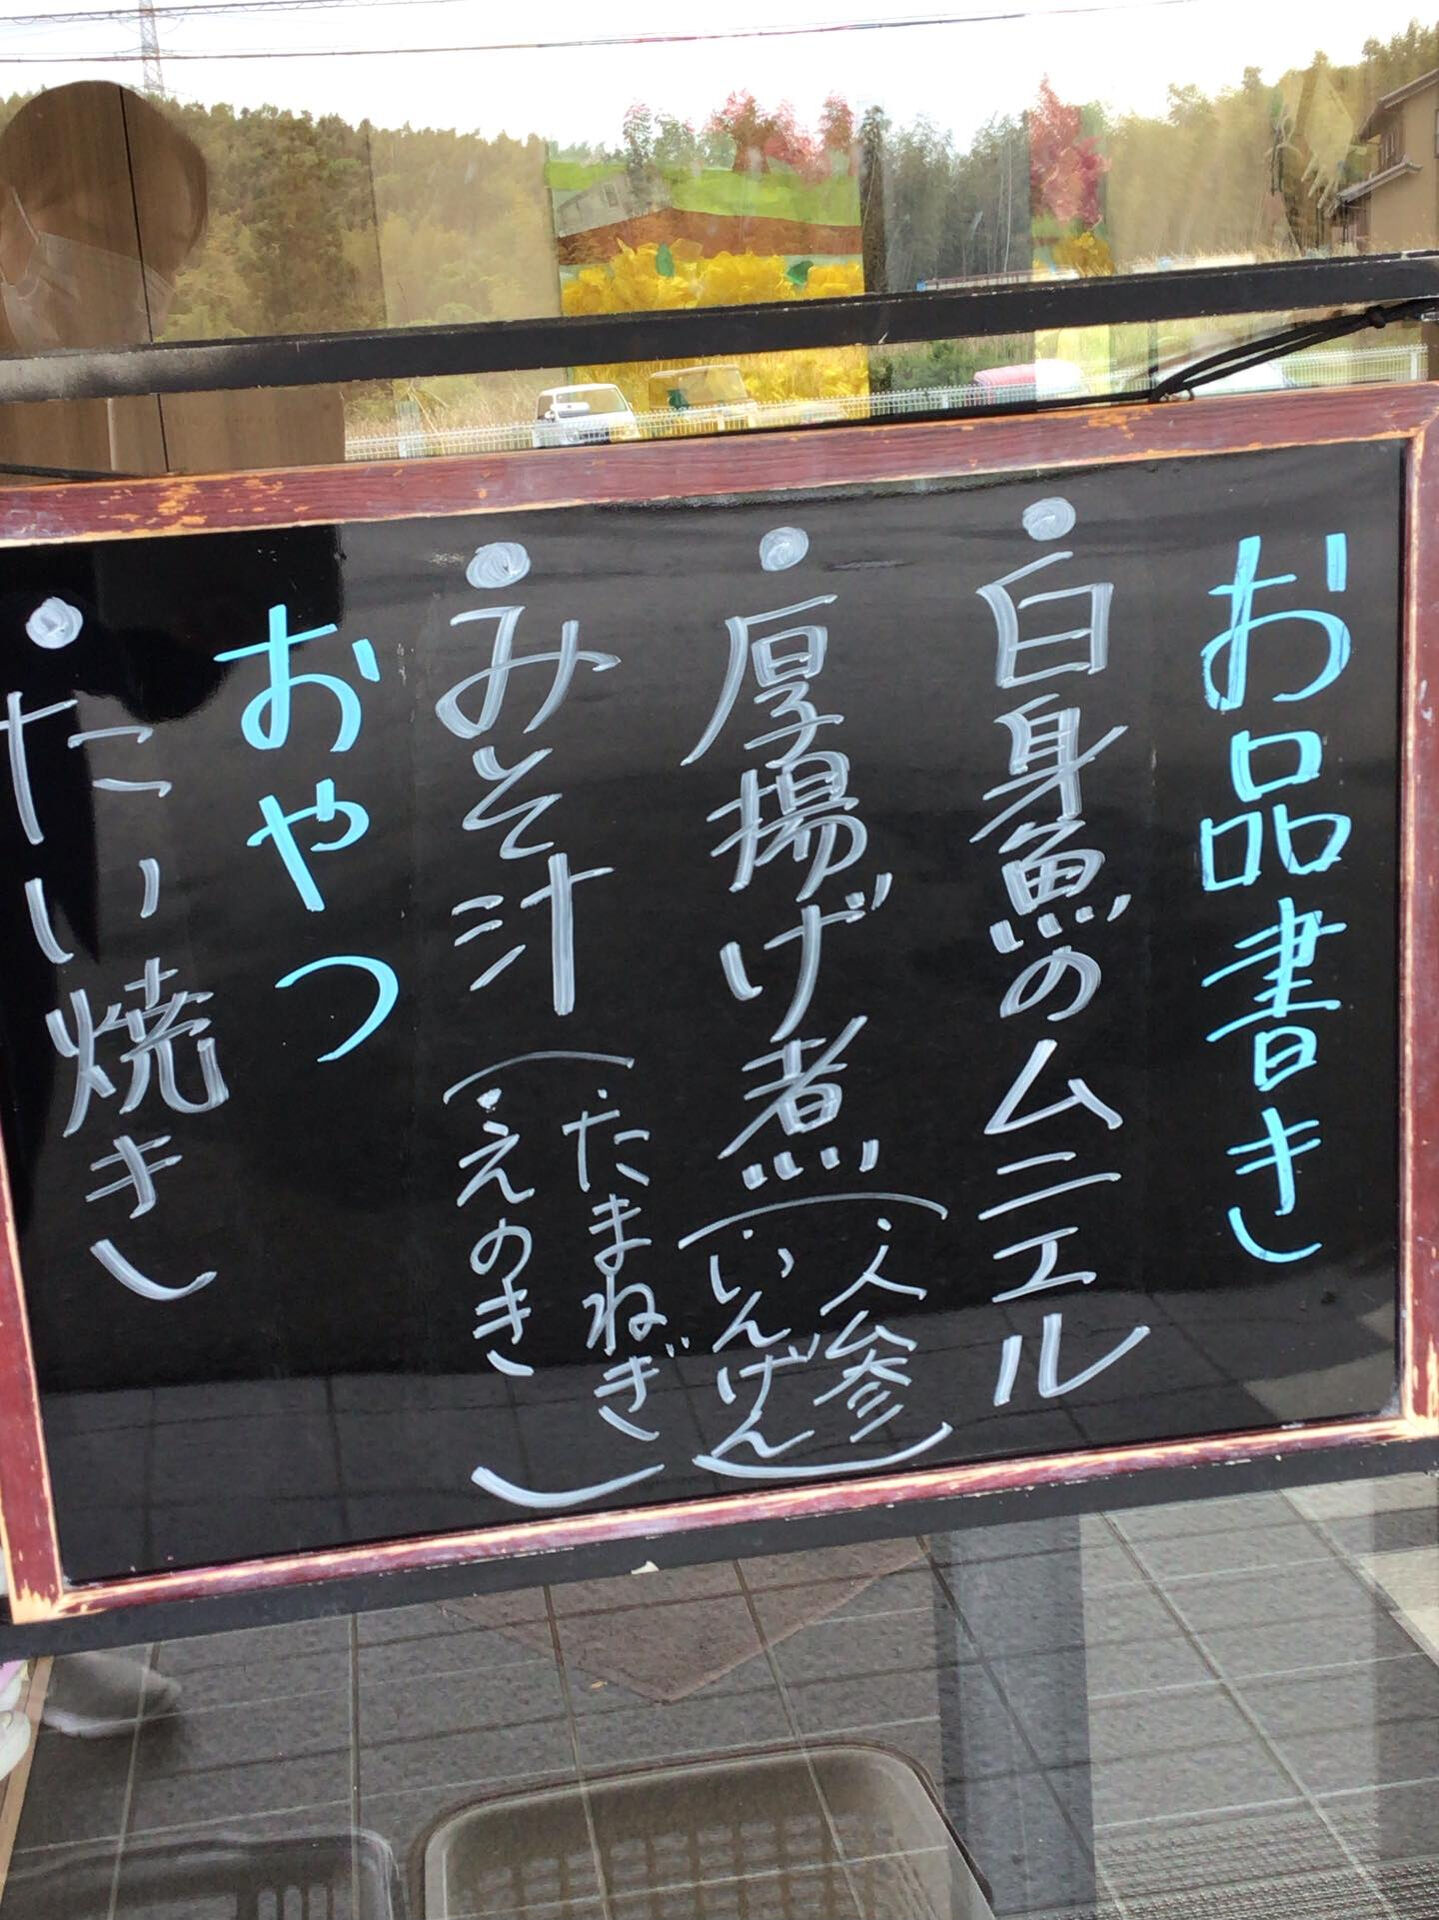 お品書き
・白身魚のムニエル
・厚揚げ煮(・人参
・いんげん)
・みそ汁(・たまねぎ
・えのき)
おやつ
・たい焼き